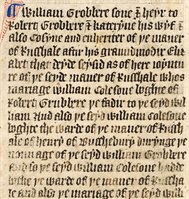 William Grobbere sone & heyr to
Robert Grobbere & kateryne his wyf &
also Cosyne and enheriter of ye maner
of Russhale aftir his graundmodir Eliza
bet that deyde seysid as of here ioyntur
of ye seyde maner of Russhale whos
mariage William Colesone boghte of
Robert Grobbere ye fadir to ye seyd wi
liam And also ye seyd william Colesone
boghte the warde of ye maner of Russh
ale of henry of duryinge ye
nonnage of ye seyd william
And so ye seyd william Colesone hadde
bothe ye warde of ye maner of Russhale
and also ye mariage of ye seyd willi